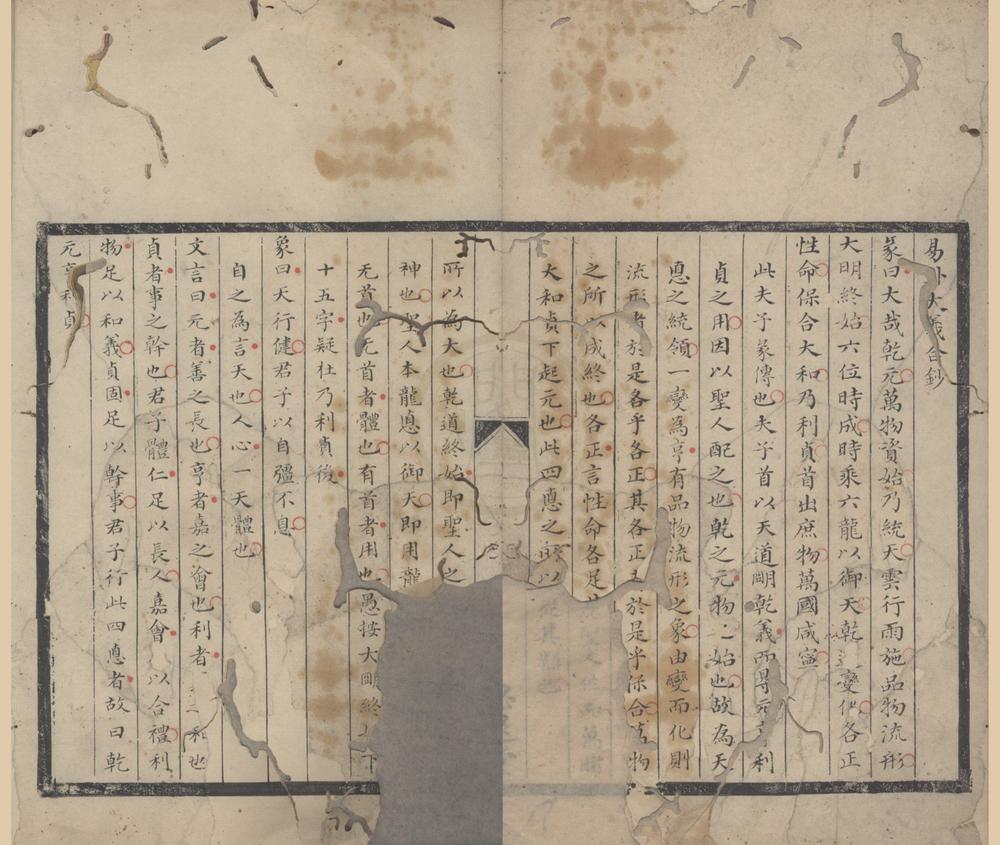 易卦大義合鈔
彖曰大哉乾元萬物資始乃統天雲行雨施品物流形
大明終始六位時成時乘六龍以御天乾道變化各正
性命保合大和乃利貞首出庶物萬國咸寧
此夫子彖傳也夫子首以天道明乾義而得元亨利
貞之用因以聖人配之也乾之元物之始也故為天
悳之統領一變為亨有品物流形之象由變而化則
流形者於是各乎各正其各正也於是乎保合萬物
之所以成終也各正言性命各足
大和貞下起元也此四悳之所以
所以為大也乾道終始即聖人之
神也聖人本龍悳以御天即用龍
无首也无首者體也有首者用也愚按大明終 下
十五字疑杜乃利貞後
象曰天行健君子以自彊不息
自之為言天也人心一天體也
文言曰元者善之長也亨者嘉之會也利者 之和也
貞者事之幹也君子體仁足以長人嘉會 以合禮利
物足以和義貞固足以幹事君子行此四悳者故曰乾
元亨利貞